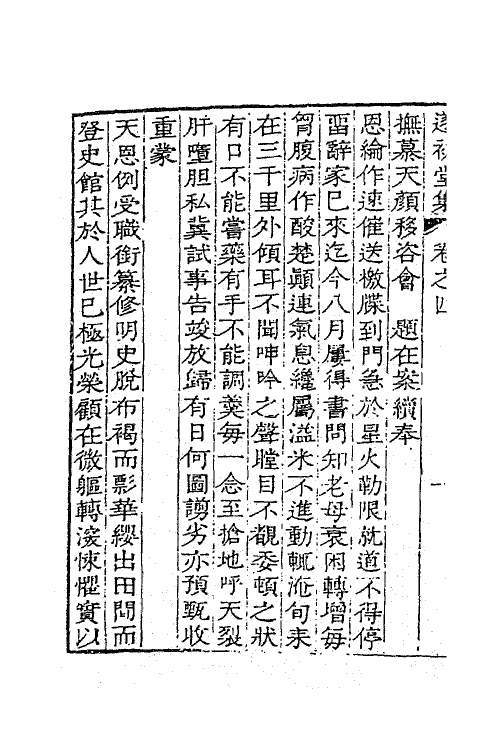 遂初堂集 卷之四
撫慕天顏移咨會 題在案續奉
恩綸作速催送檄牒到門急於星火勒限就道不得停
畱辭家已來迄今八月屢得書問知老母衰困轉增每
胷腹病作酸楚顚連氣息纔屬溢米不進動輒浹旬夫
在三千里外傾耳不聞呻吟之聲瞠目不覩委頓之狀
有口不能嘗藥有手不能調羹每一念至搶地呼天裂
肝墮胆私冀試事告竣放歸有日何圖謭劣亦預甄收
重蒙
天恩例受職銜纂修明史脫布褐而影華纓出田間而
登史館其於人世已極光榮顧在微軀轉滋悚懼實以